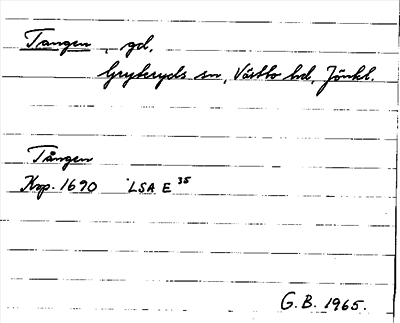 Tangen, gd,
Gryteryds sn, Västbo hd, Jönkl.
Tången
Krp. 1690 LSA E 35
G.B. 1965.